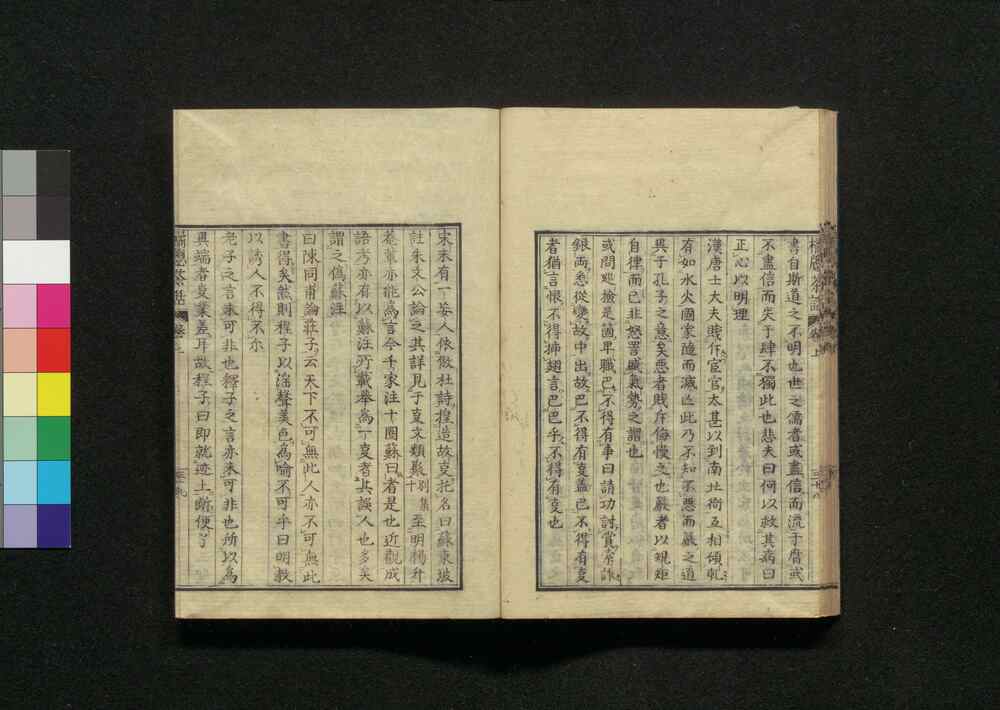 書自斯道之不明也世之儒者或盡信而流于腐或
不盡信而失于肆不獨此也悲夫曰何以救其病曰
正心以明理
漢唐士大夫賤作宦官太甚以到南北衙互相傾軋
有如水火國家隨而滅亡此乃不知不惡而嚴之道
異于孔子之意矣惡者賤斥侮慢之也嚴者以規矩
自律而已非怒罵賊氣勢之謂也
或問廵撿是箇卑職已不得有事曰請功討賞
銀兩悉從變故中出故巴不得有變蓋巴不得有變
者猶言恨不得揷翅言巴巴乎不得有變也
宋末有一妄人依倣杜詩揑造故叓托名曰蘇東坡
註朱文公論之其詳見于叓文類聚別集十至明楊升
菴輩亦能為言今千家注十圈蘇曰者是也近觀成
語考亦有以蘇注所載奉為一叓者其誤人也多矣
謂之僞蘇註
曰陳同甫論莊子云天下不可無此人亦不可無此
書得矣然則程子以淫聲美色為喻不可乎曰明教
以誘人不得不尓
老子之言未可非也釋子之言亦未可非也所以為
異端者叓業差耳故程子曰即就迹上斷便了